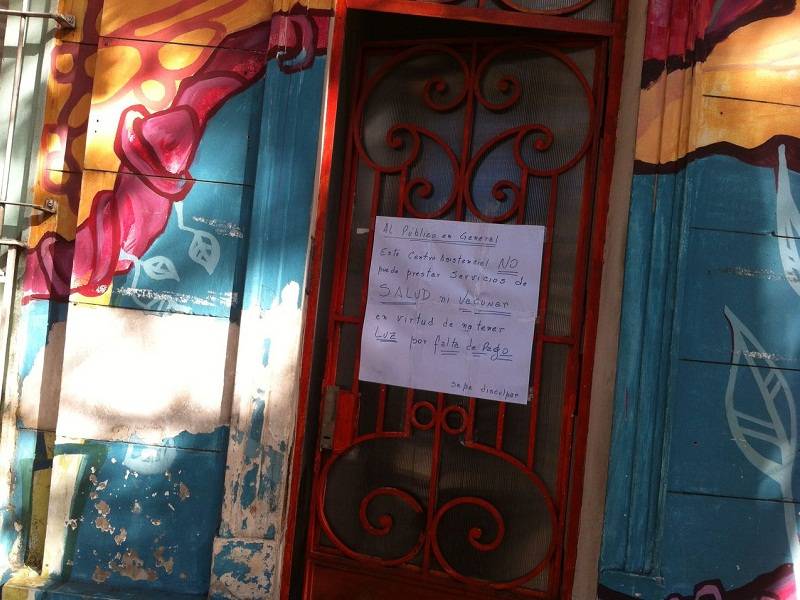 AL Publico en General
Este Centro Asistencial NO
puede prestar Servicios de
SALUD ni Vacunar
en virtud de no tener
LUZ por falta de Pago
Sepa disculpar